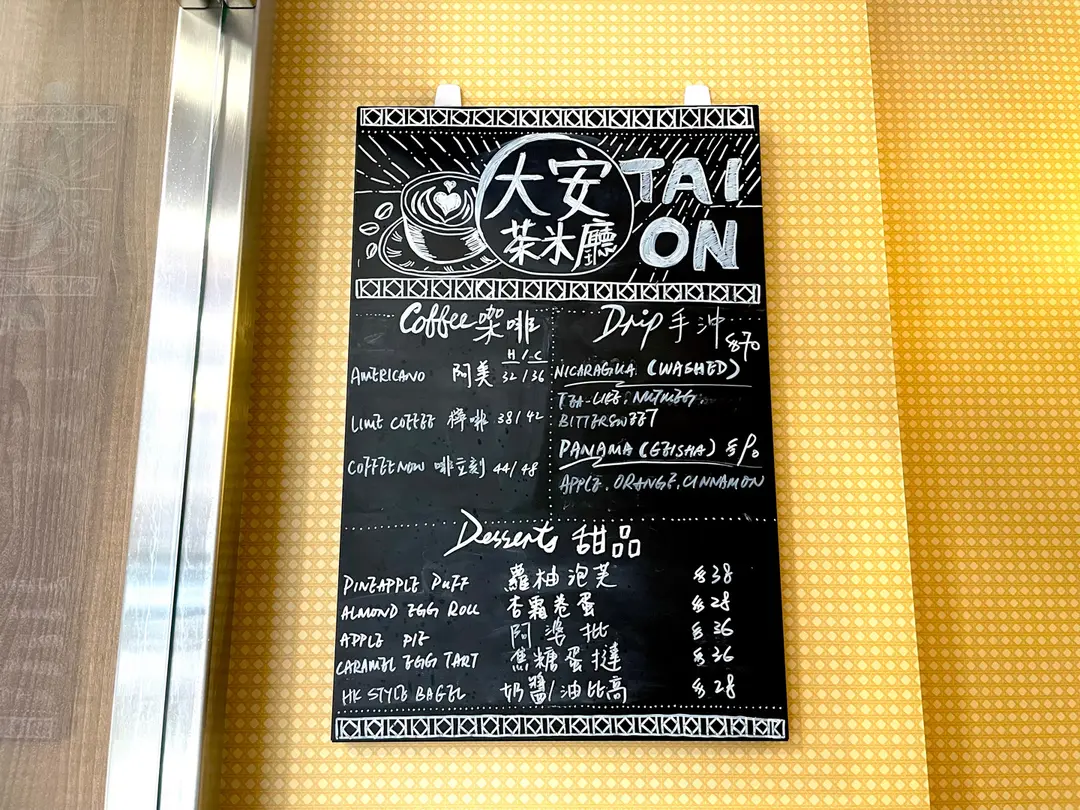 大安 TAI
茶米廳 ON
Coffee 咖啡
H / C
AMERICANO 阿美 32 / 36
LIME COFFEE 檸啡 38 / 42
COFFEE NOW 啡立刻 44 / 48
Drip 手沖 $70
NICARAGUA (WASHED)
TEA-LIKE. NUTMEG.
BITTERSWEET
PANAMA (GEISHA) $90
APPLE. ORANGE. CINNAMON
Desserts 甜品
PINEAPPLE PUFF 蘿柚泡芙 $38
ALMOND EGG ROLL 杏霜卷蛋 $28
APPLE PIE 阿婆批 $36
CARAMEL EGG TART 焦糖蛋撻 $36
HK STYLE BAGEL 奶醬/油比高 $28